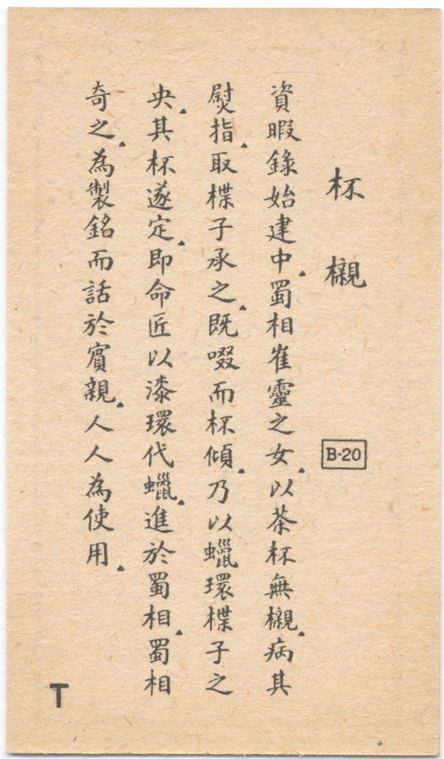 杯櫬
B-20
資暇錄始建中.蜀相崔靈之女.以茶杯無櫬.病其
熨指.取楪子承之.既啜而杯傾.乃以蠟環楪子之
央.其杯遂定.即命匠以漆環代蠟.進於蜀相.蜀相
奇之.為製銘而話於賓親.人人為使用.
T